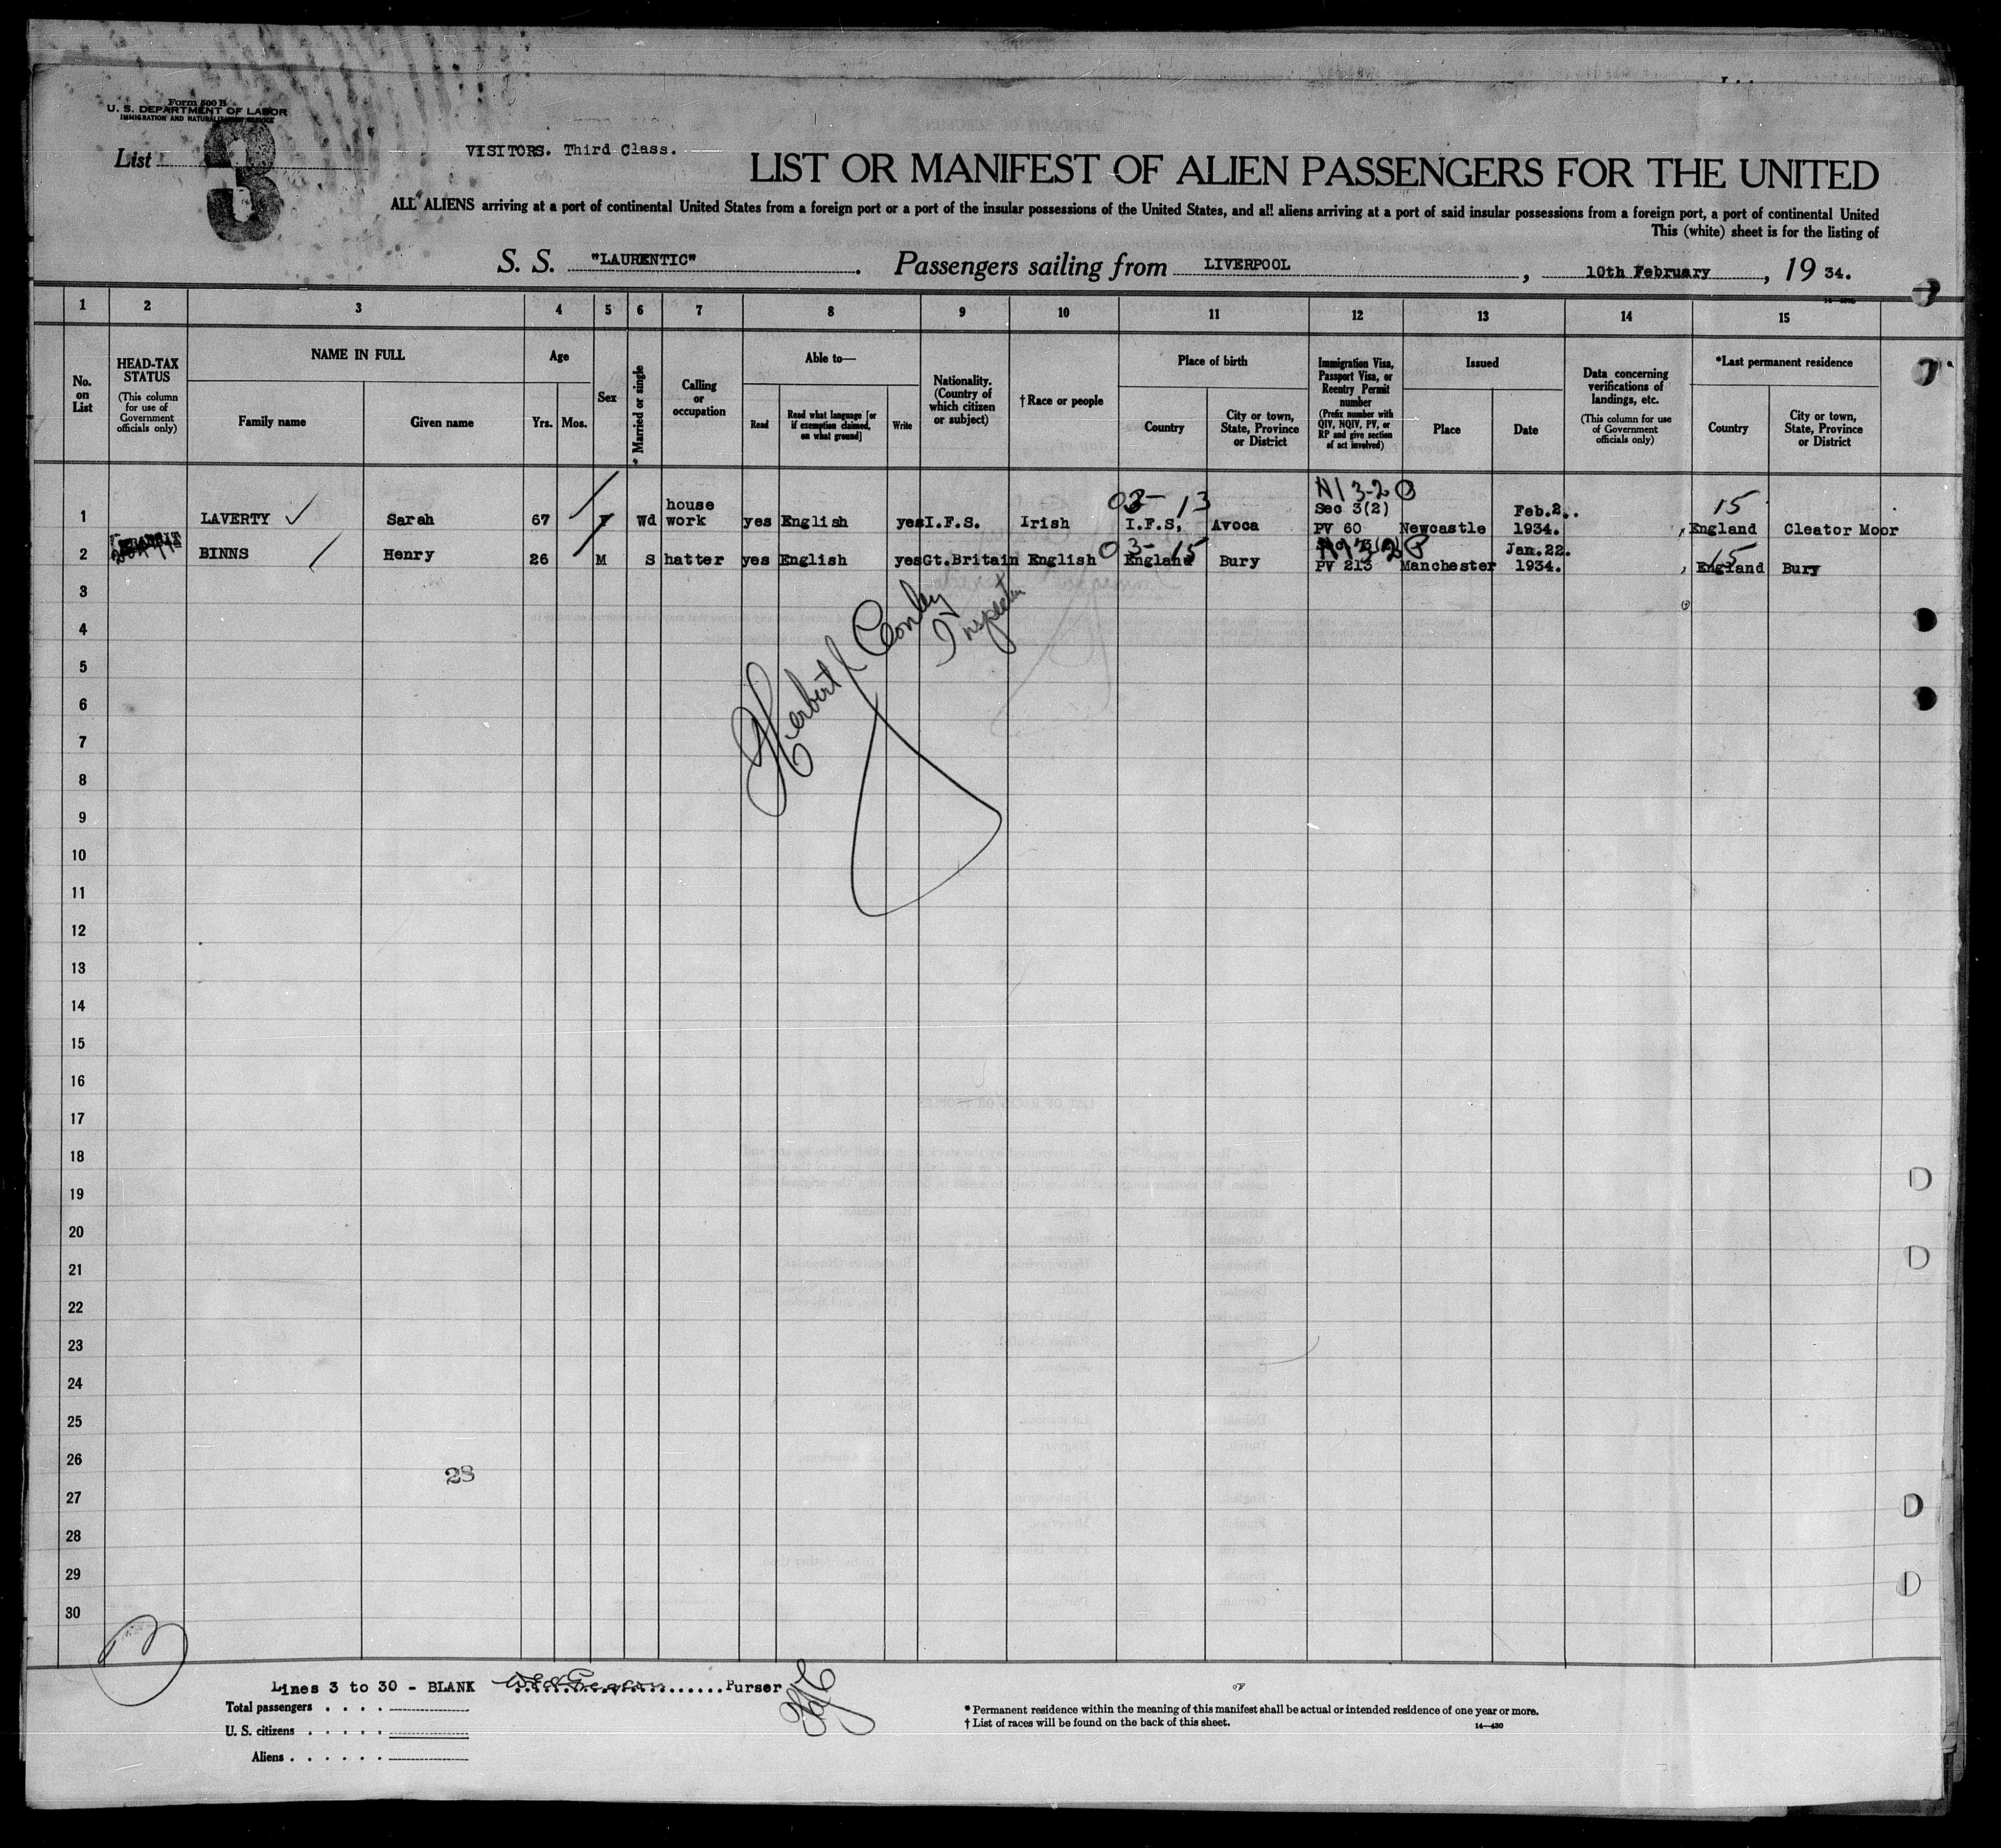 Form 500 B
U. S. DEPARTMENT OF LABOR
IMMIGRATION AND NATURALIZATION SERVICE
List 3
VISITORS. Third Class.
LIST OR MANIFEST OF ALIEN PASSENGERS FOR THE UNITED
ALL ALIENS arriving at a port of continental United States from a foreign port or a port of the insular possessions of the United States, and all aliens arriving at a port of said insular possessions from a foreign port, a port of continental United
This (white) sheet is for the listing of
S. S. "LAURENTIC". Passengers sailing from LIVERPOOL, 10th February, 19 34.
1 2 3 4 5 6 7 8 9 10 11 12 13 14 15
No. on List
HEAD-TAX STATUS
(This column for use of Government officials only)
NAME IN FULL
Family name
Given name
Age
Yrs. Mos.
Sex
* Married or single
Calling or occupation
Able to—
Read
Read what language [or if exemption claimed, on what ground]
Write
Nationality. (Country of which citizen or subject)
† Race or people
Place of birth
Country
City or town, State, Province or District
Immigration Visa, Passport Visa, or Reentry Permit number
(Prefix number with QIV, NQIV, PV, or RP and give section of act involved)
Issued
Place
Date
Data concerning verifications of landings, etc.
(This column for use of Government officials only)
*Last permanent residence
Country
City or town, State, Province or District
03- 13 15
1 LAVERTY Sarah 67 F Wd house work yes English yes I.F.S. Irish I.F.S, Avoca Sec 3(2) PV 60 Newcastle Feb.2. 1934. England Cleator Moor
03- 15 15
2 BINNS Henry 26 M S hatter yes English yes Gt.Britain English England Bury PV 213 Manchester Jan.22. 1934. England Bury
3
4
5
6
7
8
9
10
11
12
13
14
15
16
17
18
19
20
21
22
23
24
25
26
27
28
29
30
Herbert Conley
Inspector
28
Lines 3 to 30 - BLANK Purser
Total passengers
U. S. citizens
Aliens
* Permanent residence within the meaning of this manifest shall be actual or intended residence of one year or more.
† List of races will be found on the back of this sheet.
14—430